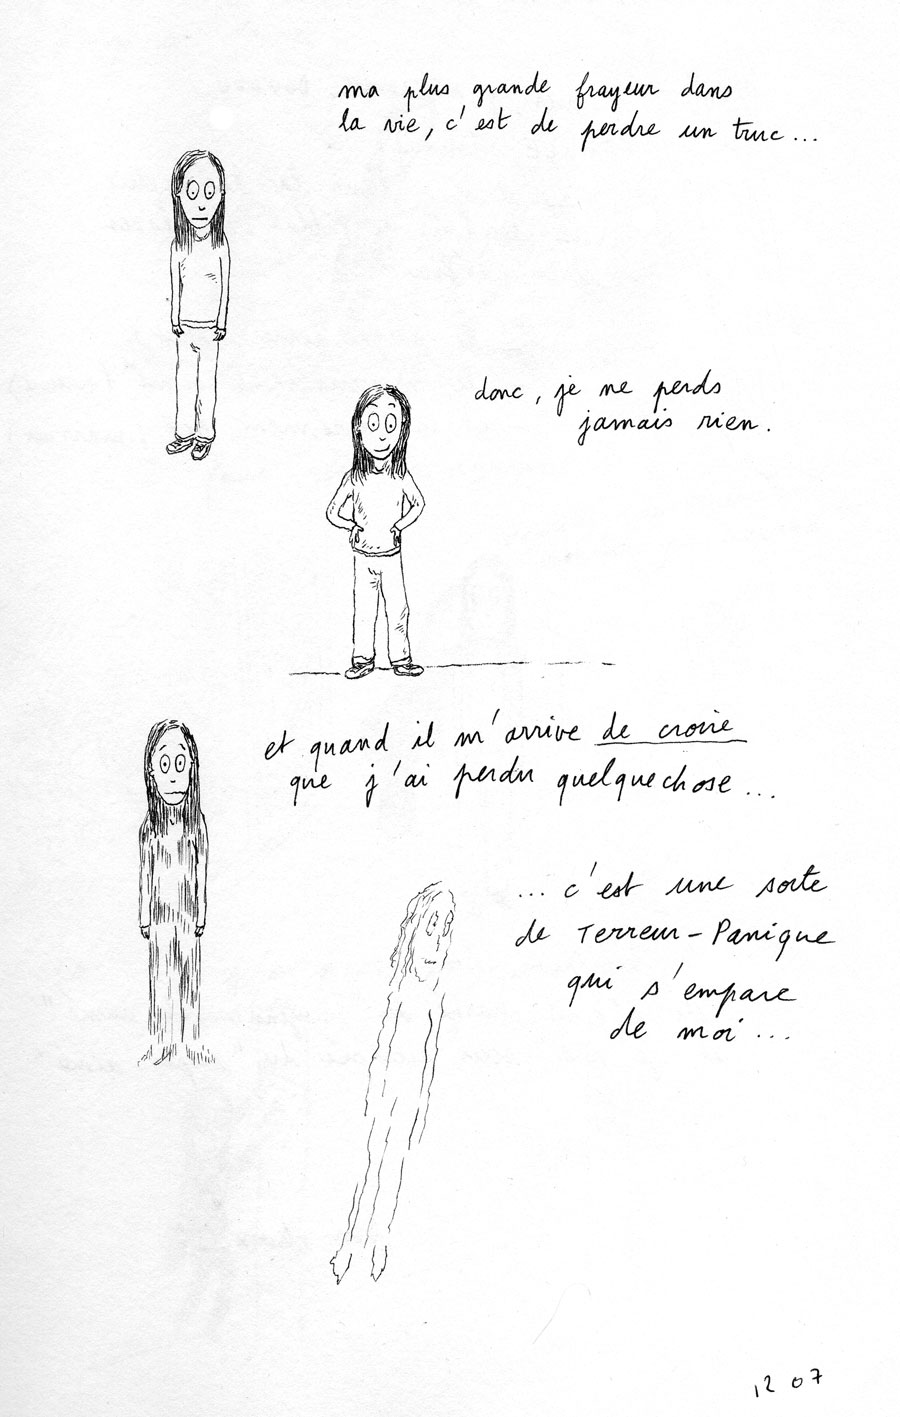 ma plus grande frayeur dans
la vie, c'est de perdre un truc...
donc, je ne perds
jamais rien.
et quand il m'arrive de croire
que j'ai perdu quelquechose...
... c'est une sorte
de Terreur-Panique
qui s'empare
de moi...
12 07